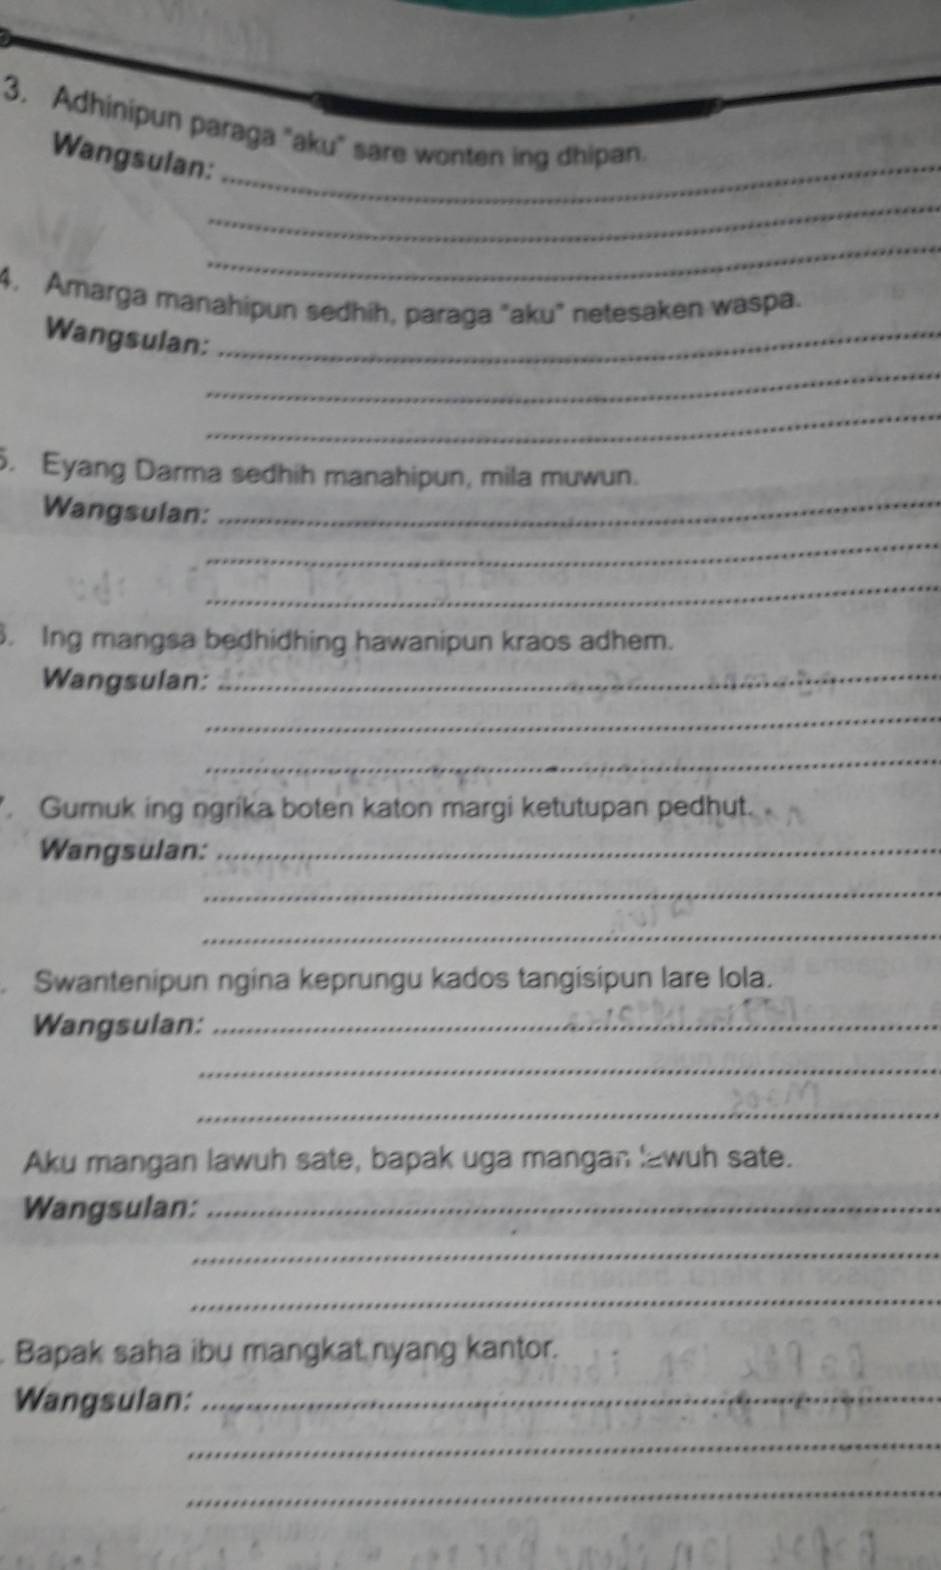 3. Adhinipun paraga "aku" sare wonten ing dhipan.
Wangsulan:
4. Amarga manahipun sedhih, paraga "aku" netesaken waspa.
Wangsulan:
5. Eyang Darma sedhih manahipun, mila muwun.
Wangsulan:
6. Ing mangsa bedhidhing hawanipun kraos adhem.
Wangsulan:
7. Gumuk ing ngrika boten katon margi ketutupan pedhut.
Wangsulan:
. Swantenipun ngina keprungu kados tangisipun lare lola.
Wangsulan:
Aku mangan lawuh sate, bapak uga mangan lawuh sate.
Wangsulan:
. Bapak saha ibu mangkat nyang kantor.
Wangsulan: